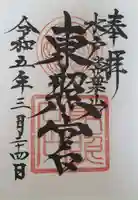 奉拝
水戸 常葉山
東照宮
令和五年三月二十四日